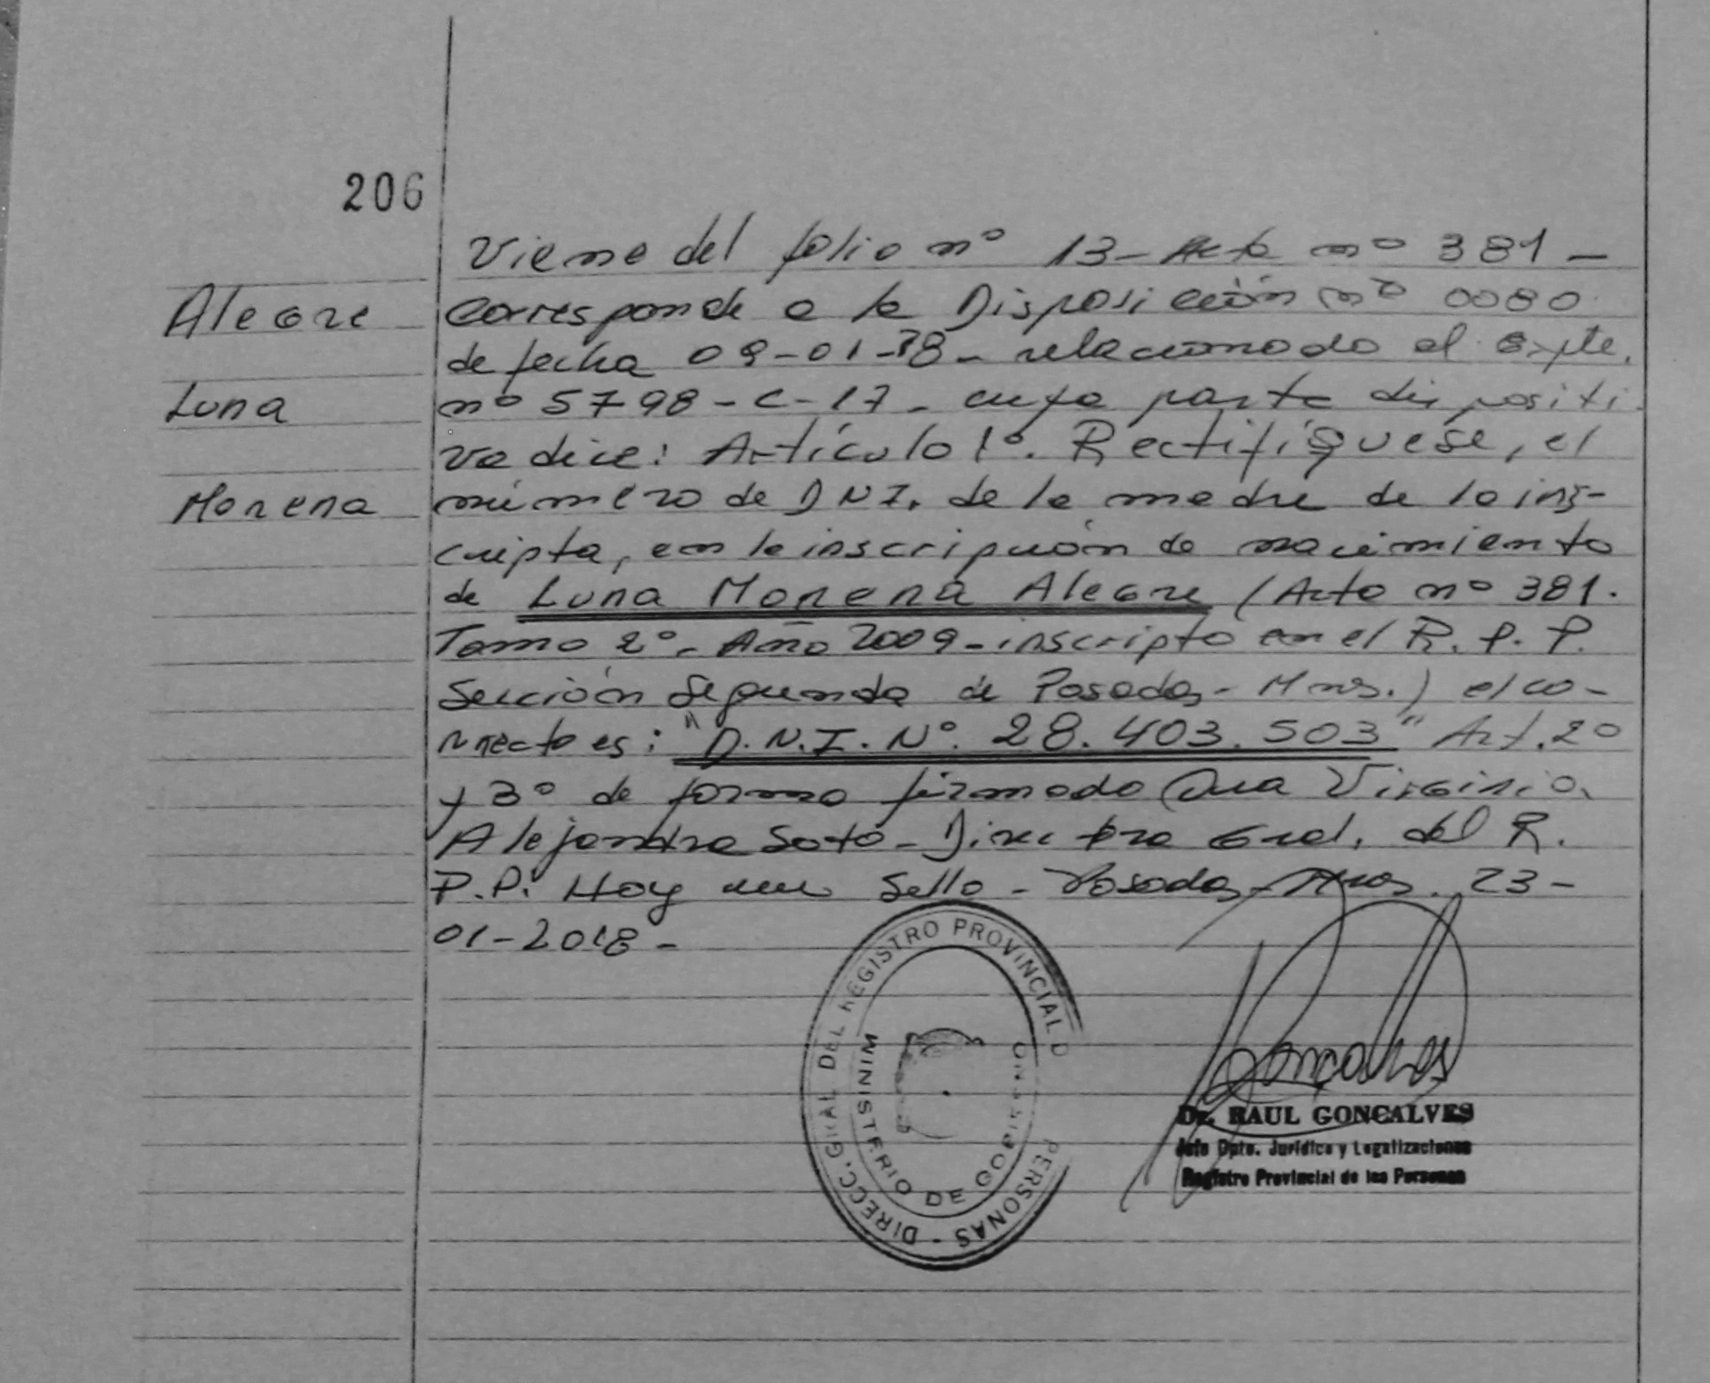 206
Alegre
Luna
Morena
Viene del folio nº 13 - Acta nº 381 -
corresponde a la Disposición nº 0080
de fecha 09-01-18 - relacionado al expte.
nº 5798 - C - 17 - cuya parte dispositi
va dice: Artículo 1º. Rectifíquese, el
número de DNI. de la madre de la ins-
cripta, en la inscripción de nacimiento
de Luna Morena Alegre (Acta nº 381.
Tomo 2º - Año 2009 - inscripta en el R. P. P.
Sección Segunda de Posadas - Mnes.) el co-
rrecto es: "D.N.I. Nº. 28.403.503" Art. 2º
y 3º de forma firmado Ana Virginia
Alejandra Soto - Directora Gral. del R.
P.P. Hay un Sello - Posadas - Mnes. 23 -
01-2018 -
DIRECC. GRAL DEL REGISTRO PROVINCIAL D PERSONAS -
MINISTERIO DE GOBIERNO
Dr. RAUL GONCALVES
Jefe Dpto. Jurídico y Legalizaciones
Registro Provincial de las Personas